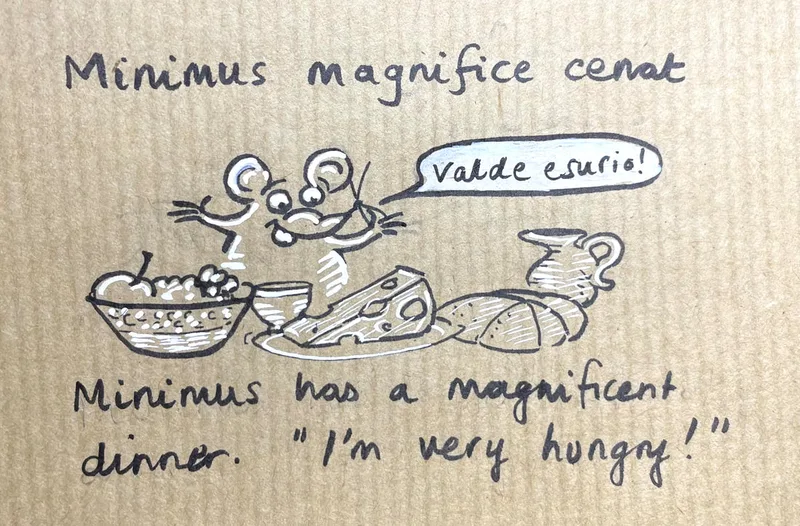 Minimus magnifice cenat
Valde esurio!
Minimus has a magnificent
dinner. "I'm very hungry!"